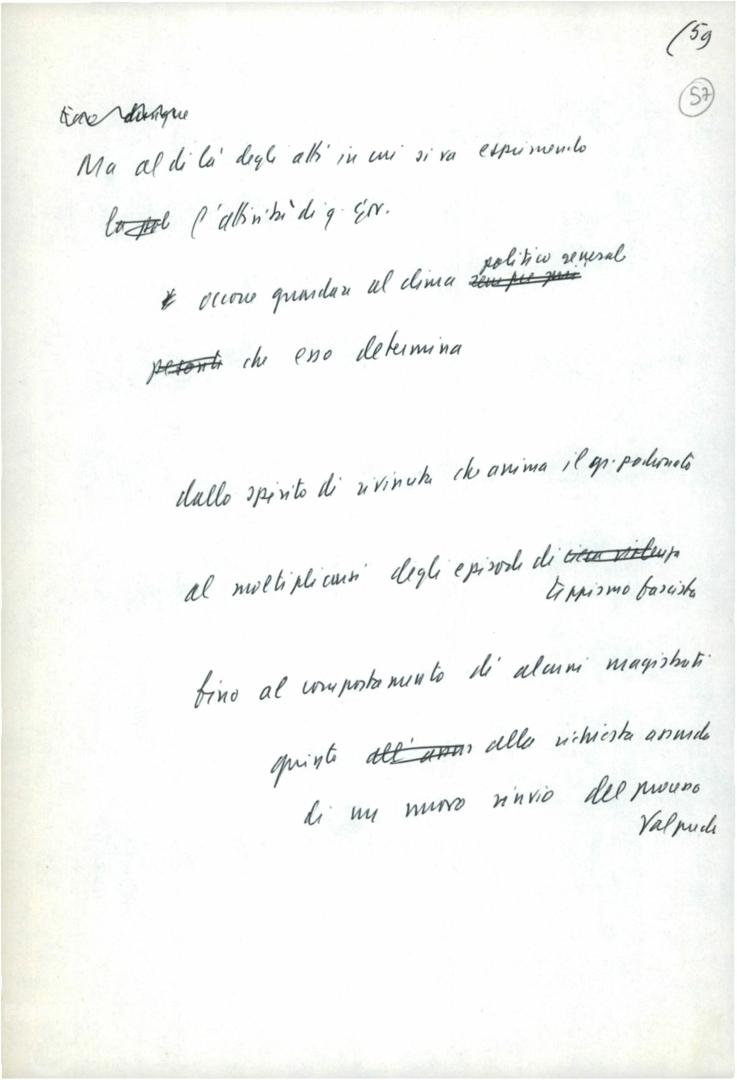 (59
57
dunque
Ma al di là degli atti in cui si va esprimendo
l'attività di q. Gov.
occorre guardare al clima politico generale
pesanti che esso determina
dallo spirito di rivincita che anima il gr. padronato
al moltiplicarsi degli episodi di cieca violenza
teppismo fascista
fino al comportamento di alcuni magistrati
giunto alla richiesta assurda
di un nuovo rinvio del processo
Valpreda